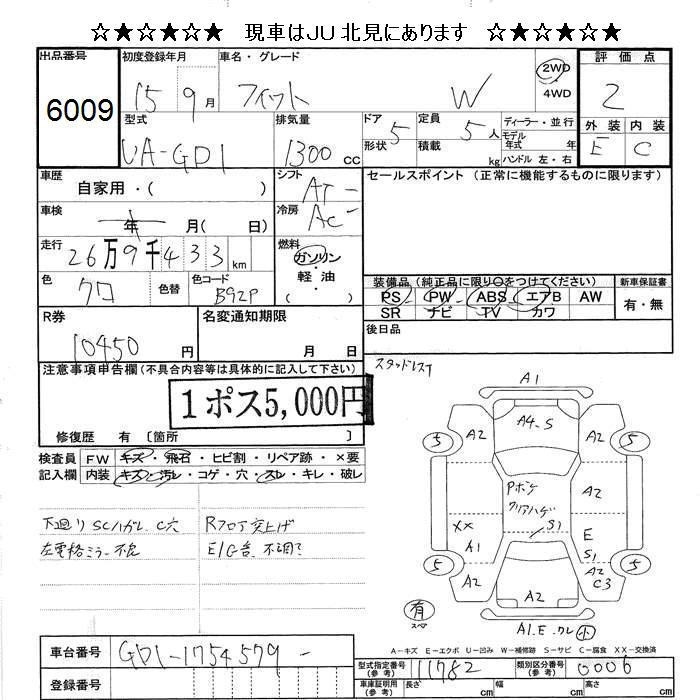 ☆★☆★☆★ 現車はJU北見にあります ☆★☆★☆★
出品番号 初度登録年月 車名・グレード 評価点
6009 15 9月 フィット W 2WD 4WD 2
型式 排気量 ドア 定員 ディーラー・並行 外装 内装
UA-GD1 1300cc 形状 5 5人 モデル年式 年式 E C
積載 kg ハンドル 左・右
車歴 自家用・( ) シフト AT セールスポイント (正常に機能するものに限ります)
車検 年 月( 日) 冷房 AC
走行 26万9千433km 燃料 ガソリン・軽・油 ( )
色 クロ 色替 色コード B92P 装備品 (純正品に限り○をつけてください) 新車保証書
PS PW ABS エアB AW 有・無
SR ナビ TV カワ
R券 10450円 名変通知期限 月 日 後日品
注意事項申告欄 (不具合内容等は具体的に記入して下さい)
スタッドレス付
1ポス5,000円
修復歴 有 〔箇所 〕
検査員記入欄 FW キズ・飛石・ヒビ割・リペア跡・×要
内装 キズ・汚レ・コゲ・穴・スレ・キレ・破レ
下廻りSCハガレ C穴 Rフロア突上げ
左電格ミラー不良 E/G音、不調?
A1
A4-S
5 A2 A2 5
Pボケ クリアハゲ A2
S1
XX A1 E S1
5 A2 A2 C3 5
A2
有 スペア A1.E.ワレ 小
A-キズ E-エクボ U-凹み W-補修跡 S-サビ C-腐食 XX-交換済
車台番号 GD1-1754579
登録番号
型式指定番号 (参考) 11782 類別区分番号 (参考) 0006
車庫証明用 (参考) 長さ cm 幅 cm 高さ cm